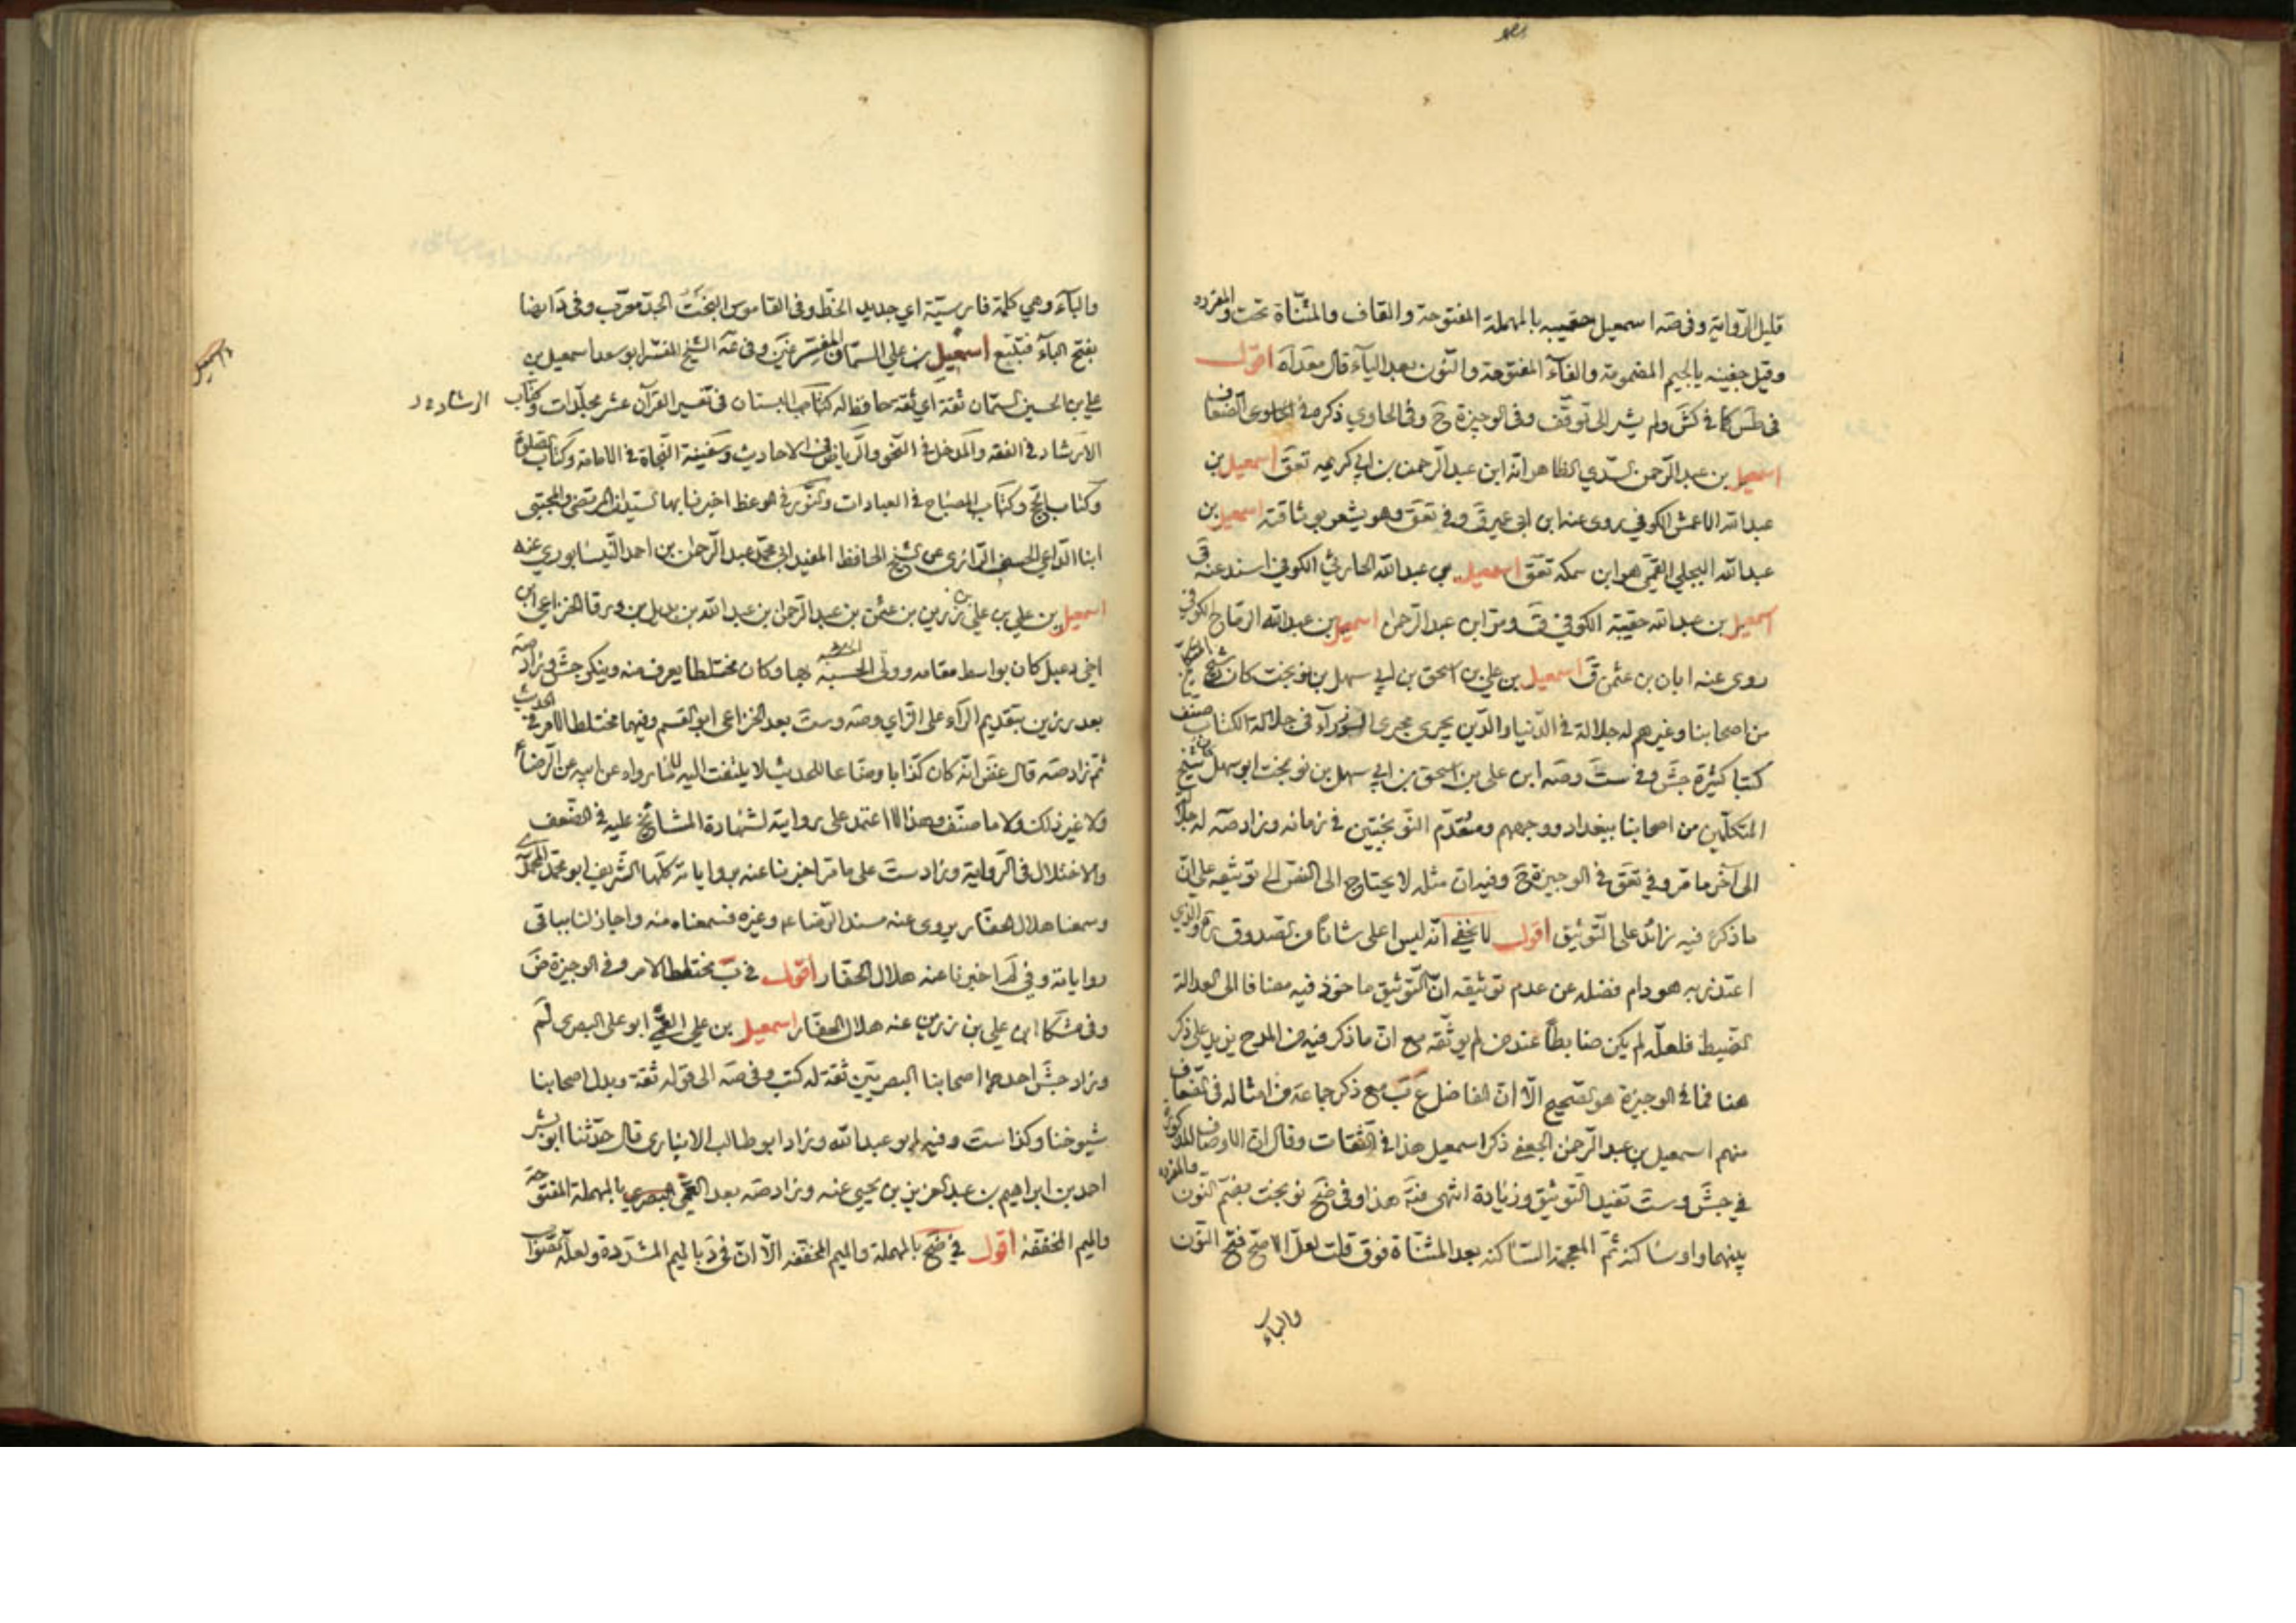 قليل الرواية وفى صه اسمعيل حقيبه بالمهملة المفتوحة والقاف والمثناة تحت والمفرده
وقيل جفينه بالجيم المضمومة والفاء المفتوحة والنون بعد الياء قال معدله اقول
فى طس كا فى كش ولم يشر الى توقف وفى الوجيزة ح وفى الحاوي ذكره فى الضعاف
اسمعيل بن عبد الرحمن السدي الظاهر انه ابن عبد الرحمن بن ابي كريمه تعق اسمعيل بن
عبد الله الاعمش الكوفي يروى عنه ابن ابى عمير ق وفى تعق وهو يشعر بوثاقته اسمعيل بن
عبد الله البجلي القمي هو ابن سمكه تعق اسمعيل بن عبد الله الحارثي الكوفي اسند عنه ق
اسمعيل بن عبد الله حقيبه الكوفي ق ومر ابن عبد الرحمن اسمعيل بن عبد الله الرماح الكوفي
روى عنه ابان بن عثمن ق اسمعيل بن علي بن اسحق بن ابي سهل بن نوبخت كان شيخ المتكلمين
من اصحابنا وغيرهم له جلالة فى الدنيا والدين يجرى مجرى الوزراء فى جلالة الكتاب صنف
كتبا كثيرة جش وفى ست وصه ابن على بن اسحق بن ابي سهل بن نوبخت ابو سهل كان شيخ
المتكلمين من اصحابنا ببغداد ووجههم ومتقدم النوبختيين فى زمانه وزاد صه له جلالة
الى آخر ما مر وفي تعق فى الوجيزة ح وفيه ان مثله لا يحتاج الى النص الى توثيقه على ان
ما ذكره فيه زائد على التوثيق اقول لا يخفى انه ليس اعلى شانا من الصدوق ره والذي
اعتذر به هو دام فضله عن عدم توثيقه ان التوثيق ماخوذ فيه مضافا الى العدالة
الضبط فلعله لم يكن ضابطا عند من لم يوثقه مع ان ما ذكر فيه من المدح يزيد على ذكر
هنا فما فى الوجيزة هو الصحيح الا ان الفاضل ع ب مع ذكر جماعة من امثاله فى الضعاف
منهم اسمعيل بن عبد الرحمن الجعفى ذكر اسمعيل هذا فى الثقات وقال ان الاوصاف المذكورة
في جش وست تفيد التوثيق وزيادة انتهى فتة هذا وفى ضح نوبخت بضم النون والمفرده
بينهما واو ساكنة ثم المعجمة الساكنة بعد المثناة فوق قلت لعل الاصح فتح النون
والباء
والباء وهي كلمة فارسية اي جديد الحظ وفى القاموس البخت الجد معرب وفى د ايضا
بفتح الباء فتتبع اسمعيل بن علي السمان المفسر عنين وفى عه الشيخ المفسر ابو سعد اسمعيل بن
علي بن الحسين السمان ثقة اي ثقة حافظ له كتاب البستان فى تفسير القرآن عشر مجلدات وكتاب
الرشاد
الارشاد فى الفقه والمدخل فى النحو والرياض فى الاحاديث وسفينة النجاة فى الامامة وكتاب الصلوة
وكتاب الحج وكتاب المصباح فى العبادات والنور فى الوعظ اخبرنا بها السيدان المرتضى والمجتبى
ابنا الداعي الحسينى الرازى عن الشيخ الحافظ المفيد ابى محمد عبد الرحمن بن احمد النيسابوري عنه
اسمعيل بن علي بن علي بن رزين بن عثمن بن عبد الرحمن ابن عبد الله بن بديل بن ورقا الخزاعي ابن
اخي دعبل كان بواسط مقامه وولى الحسبة بها وكان مختلطا يعرف منه وينكر جش وزاد صه
بعد رزين بتقديم الراء على الزاي وصه وست بعد الخزاعى ابو القسم وفيهما مختلط الامر فى الحديث
ثم زاد صه قال غض انه كان كذابا وضاعا للحديث لا يلتفت اليه لما رواه عن ابيه عن الرضا ع
ولا غير ذلك ولا ما صنف وهذا لا اعتمد على روايته لشهادة المشائخ عليه فى الضعف
والاختلال فى الرواية وزاد ست على ما مر اخبرنا عنه برواياته كلها الشريف ابو محمد المحمدى
وسمعنا هلال الحفار يروى عنه مسند الرضا ع وغيره فسمعناه منه واجاز لنا بباقى
رواياته وفي لم اخبرنا عنه هلال الحفار اقول فى ب مختلط الامر وفى الوجيزة ض
وفى مشكا ابن علي بن رزين عنه هلال الحفار اسمعيل بن علي العمى ابو على البصرى لم
وزاد جش احد اصحابنا البصريين ثقة له كتب وفى صه الى قوله ثقة وبدل اصحابنا
شيوخنا وكذا ست وفيه ابو عبد الله وزاد ابو طالب الانبارى قال حدثنا ابو بشر
احمد بن ابراهيم بن عبد العزيز بن يحيى عنه وزاد صه بعد العمى البصرى بالمهملة المفتوحة
والميم المخففة اقول فى ضح بالمهملة والميم المخففة الا ان فى د بالميم المشددة ولعله الصواب